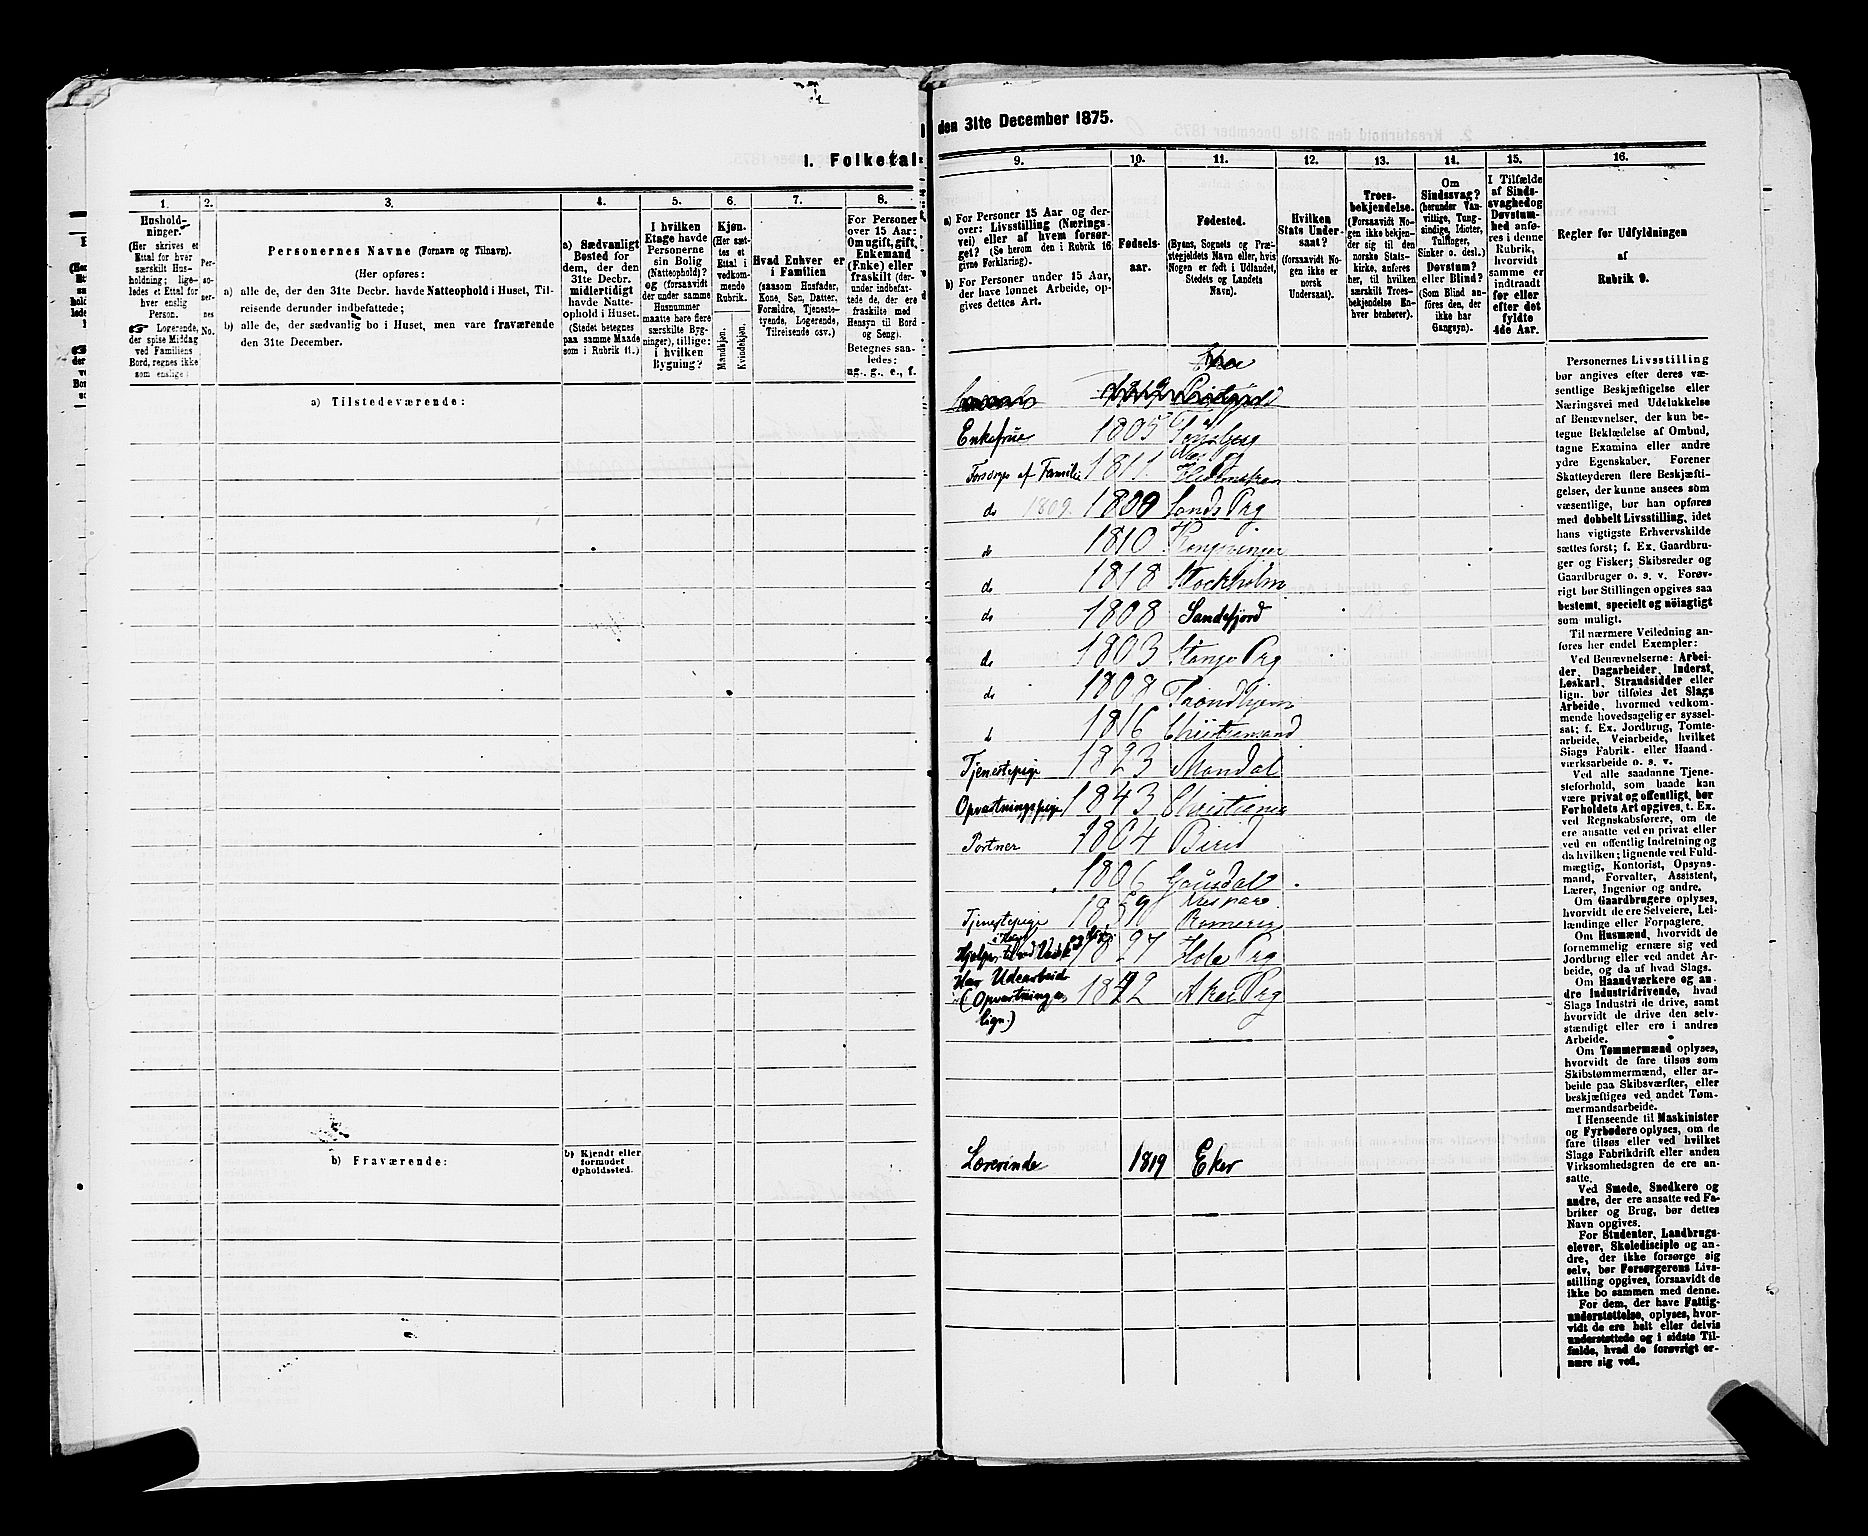 I. Folketal
1. 2. 3. 4. 5. 6. 7. 8.
Hushold-
ninger.
(Her skrives et
Ettal for hver
særskilt Hus-
holdning; lige-
ledes et Ettal for
hver enslig
Person.
Logerende,
der spise Middag
ved Familiens
Bord, regnes ikke
som enslige.)
Per-
so-
ner-
nes
No.
Personernes Navne (Fornavn og Tilnavn).
(Her opføres:
a) alle de, der den 31te Decbr. havde Natteophold i Huset, Til-
reisende derunder indbefattede;
b) alle de, der sædvanlig bo i Huset, men vare fraværende
den 31te December.
a) Sædvanligt
Bosted for
dem, der den
31te Decbr.
midlertidigt
havde Natte-
ophold i Huset.
(Stedet betegnes
paa samme Maade
som i Rubrik 11.)
I hvilken
Etage havde
Personerne
sin Bolig
(Natteophold)?
og (forsaavidt
der under samme
Husnummer
maatte høre flere
særskilte Byg-
ninger), tillige:
i hvilken
Bygning?
Kjøn.
(Her sæt-
tes et
Ettal i
vedkom-
mende
Rubrik.
Mandkjøn.
Kvindekjøn.
Hvad Enhver er
i Familien
(saasom Husfader,
Kone, Søn, Datter,
Forældre, Tjeneste-
tyende, Logerende,
Tilreisende osv.)
For Personer
over 15 Aar:
Om ugift, gift,
Enkemand
(Enke) eller
fraskilt (der-
under indbefat-
tede de, der ere
fraskilte med
Hensyn til Bord
og Seng).
Betegnes saa-
ledes:
ug., g., e., f.
a) Tilstedeværende:
b) Fraværende:
b) Kjendt eller
formodet
Opholdssted.
den 31te December 1875.
9. 10. 11. 12. 13. 14. 15. 16.
a) For Personer 15 Aar og der-
over: Livsstilling (Nærings-
vei) eller af hvem forsør-
get? (Se herom den i Rubrik 16
givne Forklaring).
b) For Personer under 15 Aar,
der have lønnet Arbeide, op-
gives dettes Art.
Fødsels-
aar.
Fødested.
(Byens, Sognets og Præ-
stegjeldets Navn eller, hvis
Nogen er født i Udlandet,
Stedets og Landets
Navn).
Hvilken
Stats Under-
saat?
(forsaavidt No-
gen ikke er
norsk
Undersaat).
Troes-
bekjendelse.
(Forsaavidt No-
gen ikke bekjen-
der sig til den
norske Stats-
kirke, anføres
her, til hvilken
særskilt Troes-
bekjendelse En-
hver henhører).
Om
Sindssvag?
(herunder Van-
vittige, Tung-
sindige, Idioter,
Tullinger,
Sinker o. desl.)
Døvstum?
eller Blind?
(Som Blind an-
føres den, der
ikke har
Gangsyn).
I Tilfælde
af Sinds-
svaghed og
Døvstum-
hed anfø-
res i denne
Rubrik,
hvorvidt
samme er
indtraadt
før eller
efter det
fyldte
4de Aar.
Regler for Udfyldningen
af
Rubrik 9.
Enkefrue 1805 Tønsberg
Forsørges af Familie 1811 Holmestran
do 1809. 1809 Lands Prg
do 1810 Kongsvinger
do 1818 Stockholm
do 1808 Sandefjord
do 1803 Stange Prg
do 1808 Trondhjem
do 1816 Christiansand
Tjenestepige 1823 Mandal
Opvartningspige 1843 Christiania
Portner 1804 Birid
1806 Gausdal
Tjenestepige Romerig
Hole Prg
Har Udearbeid
(Opvartning o. 1842 Aker Prg
lign.)
Lærerinde 1819 Eker
Personernes Livsstilling
bør angives efter deres væ-
sentlige Beskjæftigelse eller
Næringsvei med Udelukkelse
af Benævnelser, der kun be-
tegne Beklædelse af Ombud,
tagne Examina eller andre
ydre Egenskaber. Forener
Skatteyderen flere Beskjæfti-
gelser, der kunne ansees som
væsentlige, bør han opføres
med dobbelt Livsstilling, idet
hans vigtigste Erhvervskilde
sættes først; f. Ex. Gaardbru-
ger og Fisker; Skibsreder og
Gaardbruger o. s. v. Forøv-
rigt bør Stillingen opgives saa
bestemt, specielt og nöiagtigt
som muligt.
Til nærmere Veiledning an-
føres her endel Exempler:
Ved Benævnelserne: Arbei-
der, Dagarbeider, Inderst,
Løskarl, Strandsidder eller
lign. bør tilføies det Slags
Arbeide, hvormed vedkom-
mende hovedsagelig er syssel-
sat; f. Ex. Jordbrug, Tomte-
arbeide, Veiarbeide, hvilket
Slags Fabrik- eller Haand-
værksarbeide o. s. v.
Ved alle saadanne Tjene-
steforhold, som baade kan
være privat og offentligt, bør
Forholdets Art opgives, t. Ex.
ved Regnskabsførere, om de
ere ansatte ved en privat eller
ved en offentlig Indretning og
da hvilken; lignende ved Fuld-
mægtig, Kontorist, Opsyns-
mand, Forvalter, Assistent,
Lærer, Ingeniør og andre.
Om Gaardbrugere oplyses,
hvorvidt de ere Selveiere, Lei-
lændinge eller Forpagtere.
Om Husmænd, hvorvidt de
fornemmelig ernære sig ved
Jordbrug eller ved andet Ar-
beide, og da af hvad Slags.
Om Haandværkere og an-
dre Industridrivende, hvad
Slags Industri de drive, samt
hvorvidt de drive den selv-
stændigt eller ere i andres
Arbeide.
Om Tømmermænd oplyses,
hvorvidt de fare tilsøs som
Skibstømmermænd, eller ar-
beide paa Skibsværfter, eller
beskjæftiges ved andet Tøm-
mermandsarbeide.
I Henseende til Maskinister
og Fyrbødere oplyses, om de
fare tilsøs eller ved hvilket
Slags Fabrikdrift eller anden
Virksomhedsgren de ere an-
satte.
Ved Smede, Snedkere og
andre, der ere ansatte ved Fa-
briker og Brug, bør dettes
Navn opgives.
For Studenter, Landbrugs-
elever, Skoledisciple og an-
dre, der ikke forsørge sig
selv, bør Forsørgerens Livs-
stilling opgives, forsaavidt de
ikke bo sammen med denne.
For dem, der have Fattig-
understøttelse, oplyses, hvor-
vidt de ere helt eller delvis
understøttede og i sidste Til-
fælde, hvad de forøvrigt er-
nære sig ved.